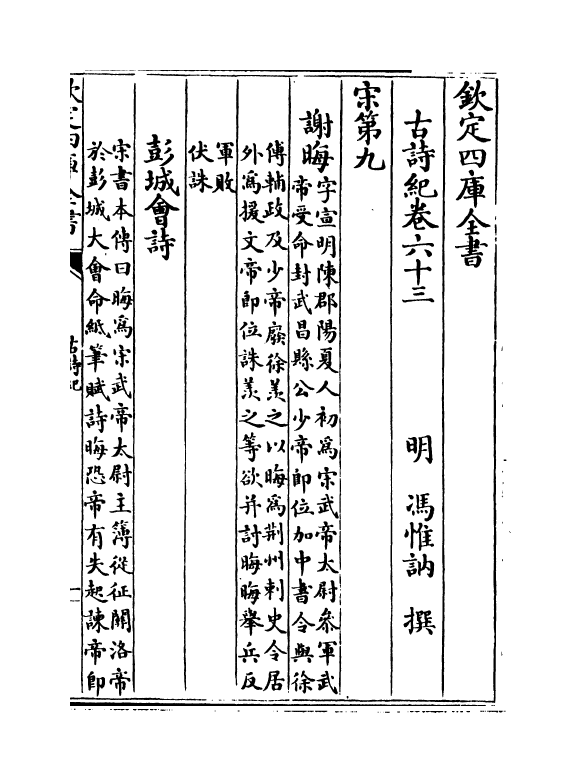 欽定四庫全書
古詩紀卷六十三
明 馮惟訥 撰
宋第九
謝晦
字宣明陳郡陽夏人初為宋武帝太尉叅軍武
帝受命封武昌縣公少帝即位加中書令與徐
傅輔政及少帝廢徐羨之以晦為荆州刺史令居
外為援文帝即位誅羨之等欲并討晦晦舉兵反
軍敗
伏誅
彭城會詩
宋書本傳曰晦為宋武帝太尉主簿從征關洛帝
於彭城大會命紙筆賦詩晦恐帝有失起諫帝即
欽定四庫全書
古詩紀
一